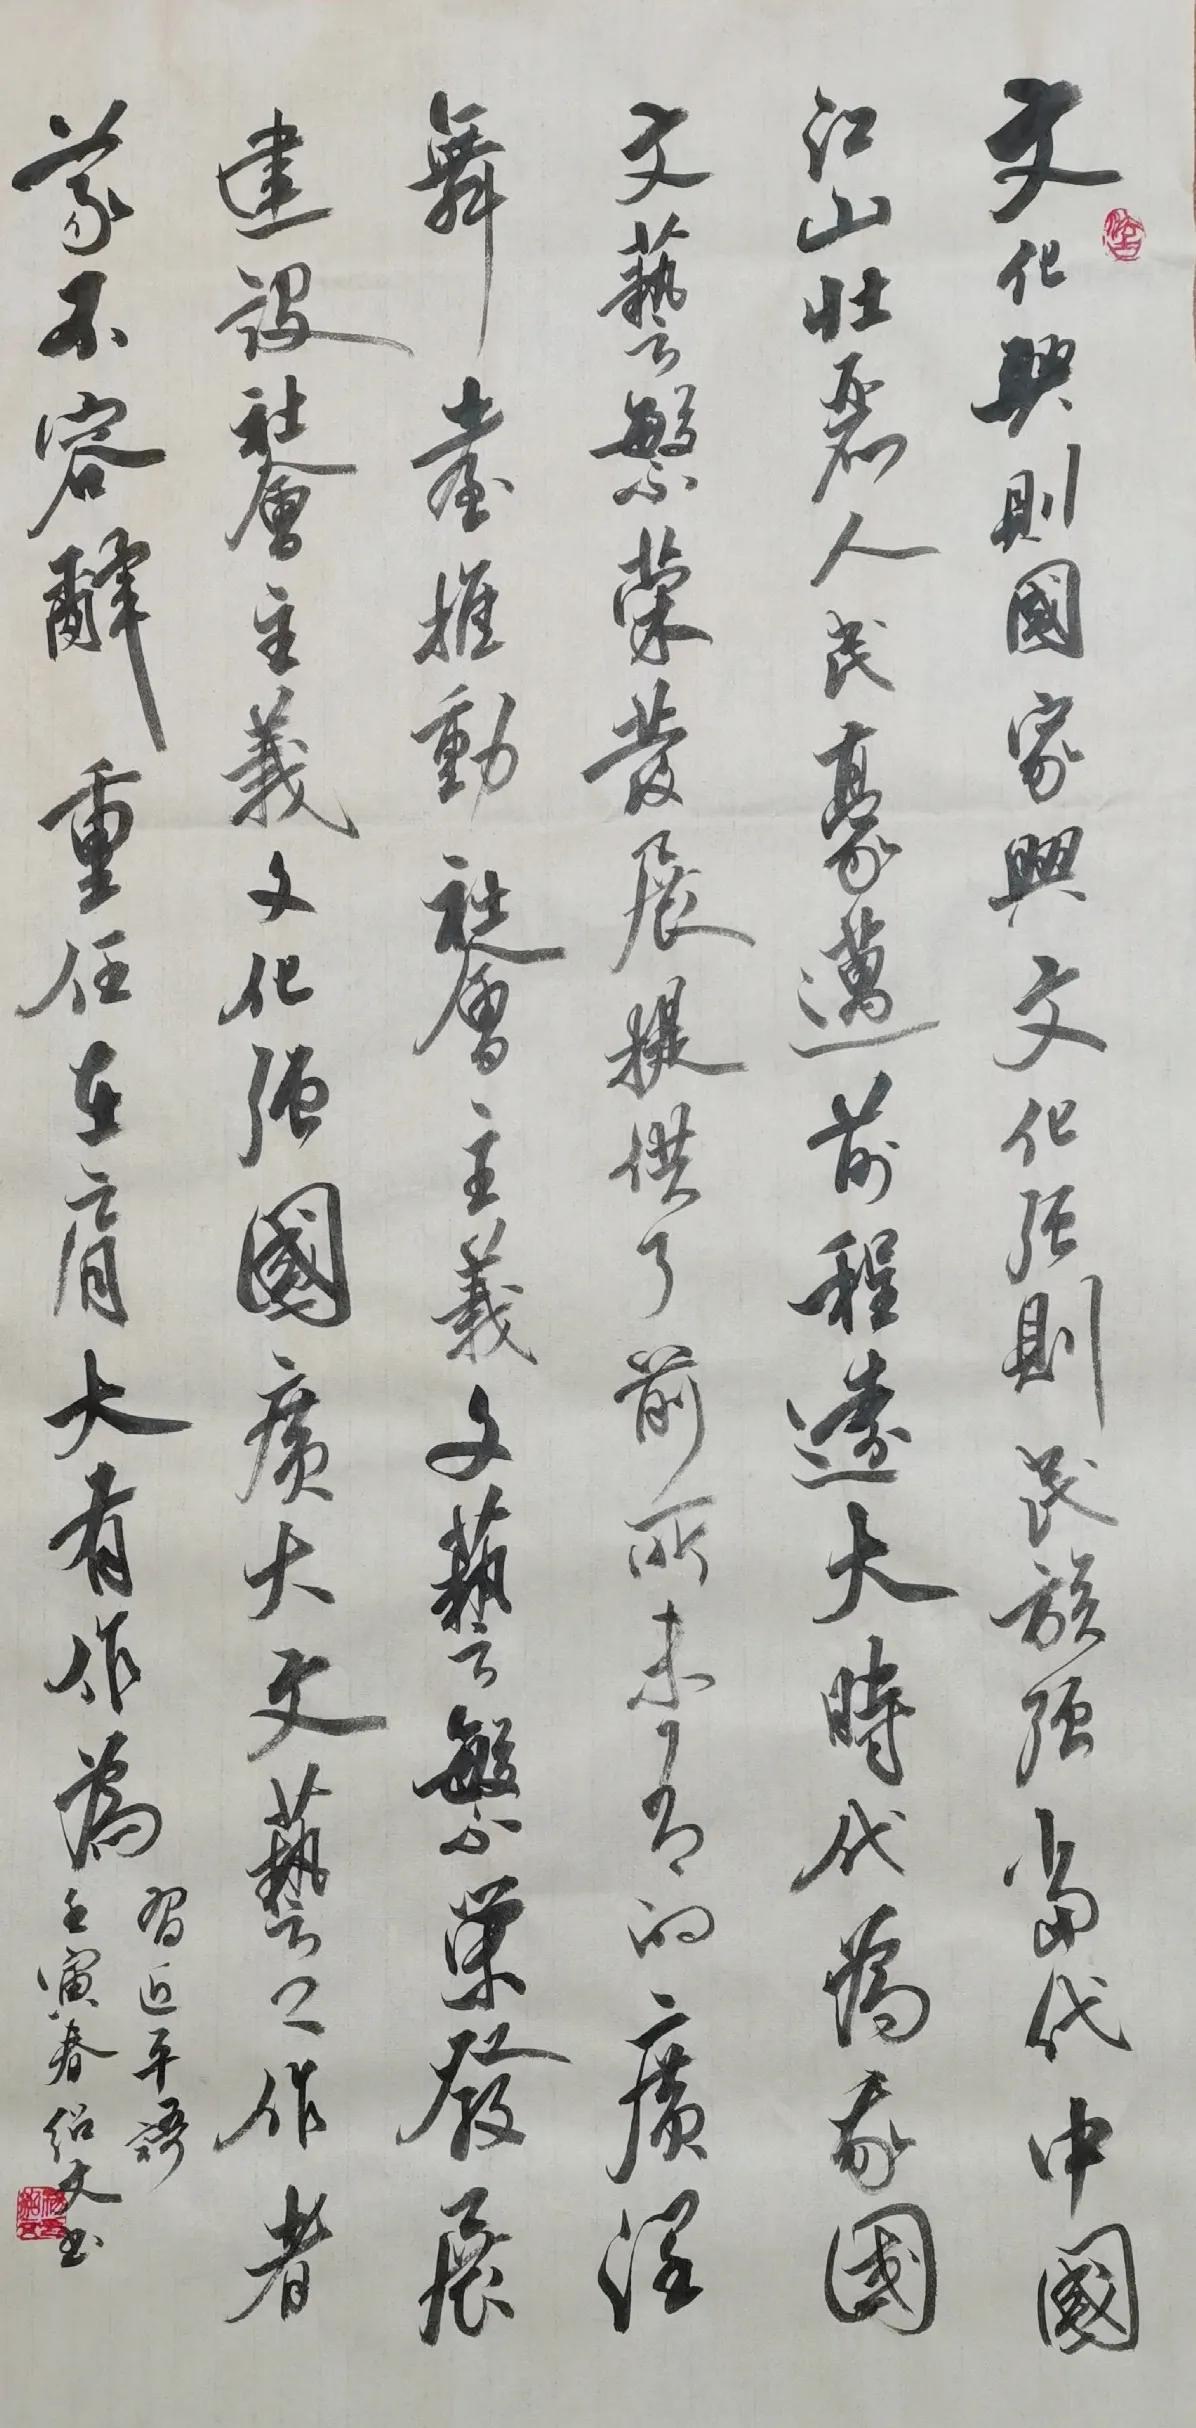 文化興則國家興文化强則民族强當代中國
江山壯麗人民豪邁前程遠大時代爲我國
文藝繁荣發展提供了前所未有的廣闊
舞臺推動社會主義文藝繁荣發展
建設社會主義文化强國廣大文藝工作者
義不容辭重任在肩大有作為
習近平語
壬寅春绍文书